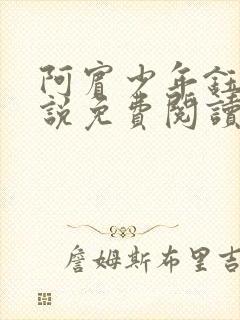 阿賓少年鈺
説免費閱讀
詹姆斯布里吉